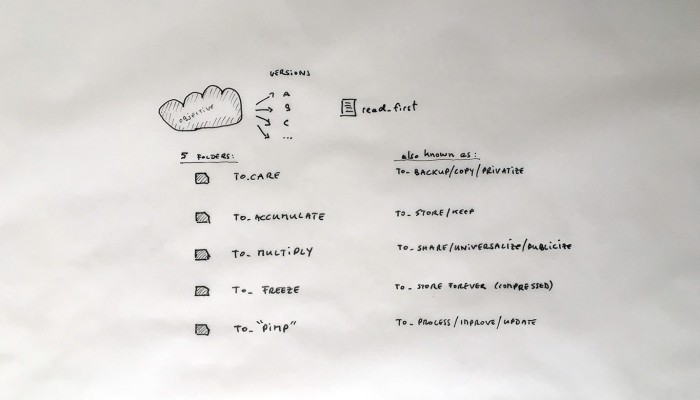 VERSIONS
OBJECTIVE
A
B
C
...
read_first
5 FOLDERS:
also known as:
TO_CARE
TO_ BACKUP/COPY/PRIVATIZE
TO_ ACCUMULATE
TO_ STORE/KEEP
TO_ MULTIPLY
TO_ SHARE/UNIVERSALIZE/PUBLICIZE
TO_ FREEZE
TO_ STORE FOREVER (COMPRESSED)
TO_ "PIMP"
TO_ PROCESS/IMPROVE/UPDATE